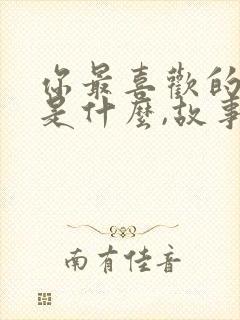 你最喜歡的
是什麼,故事
南有佳音